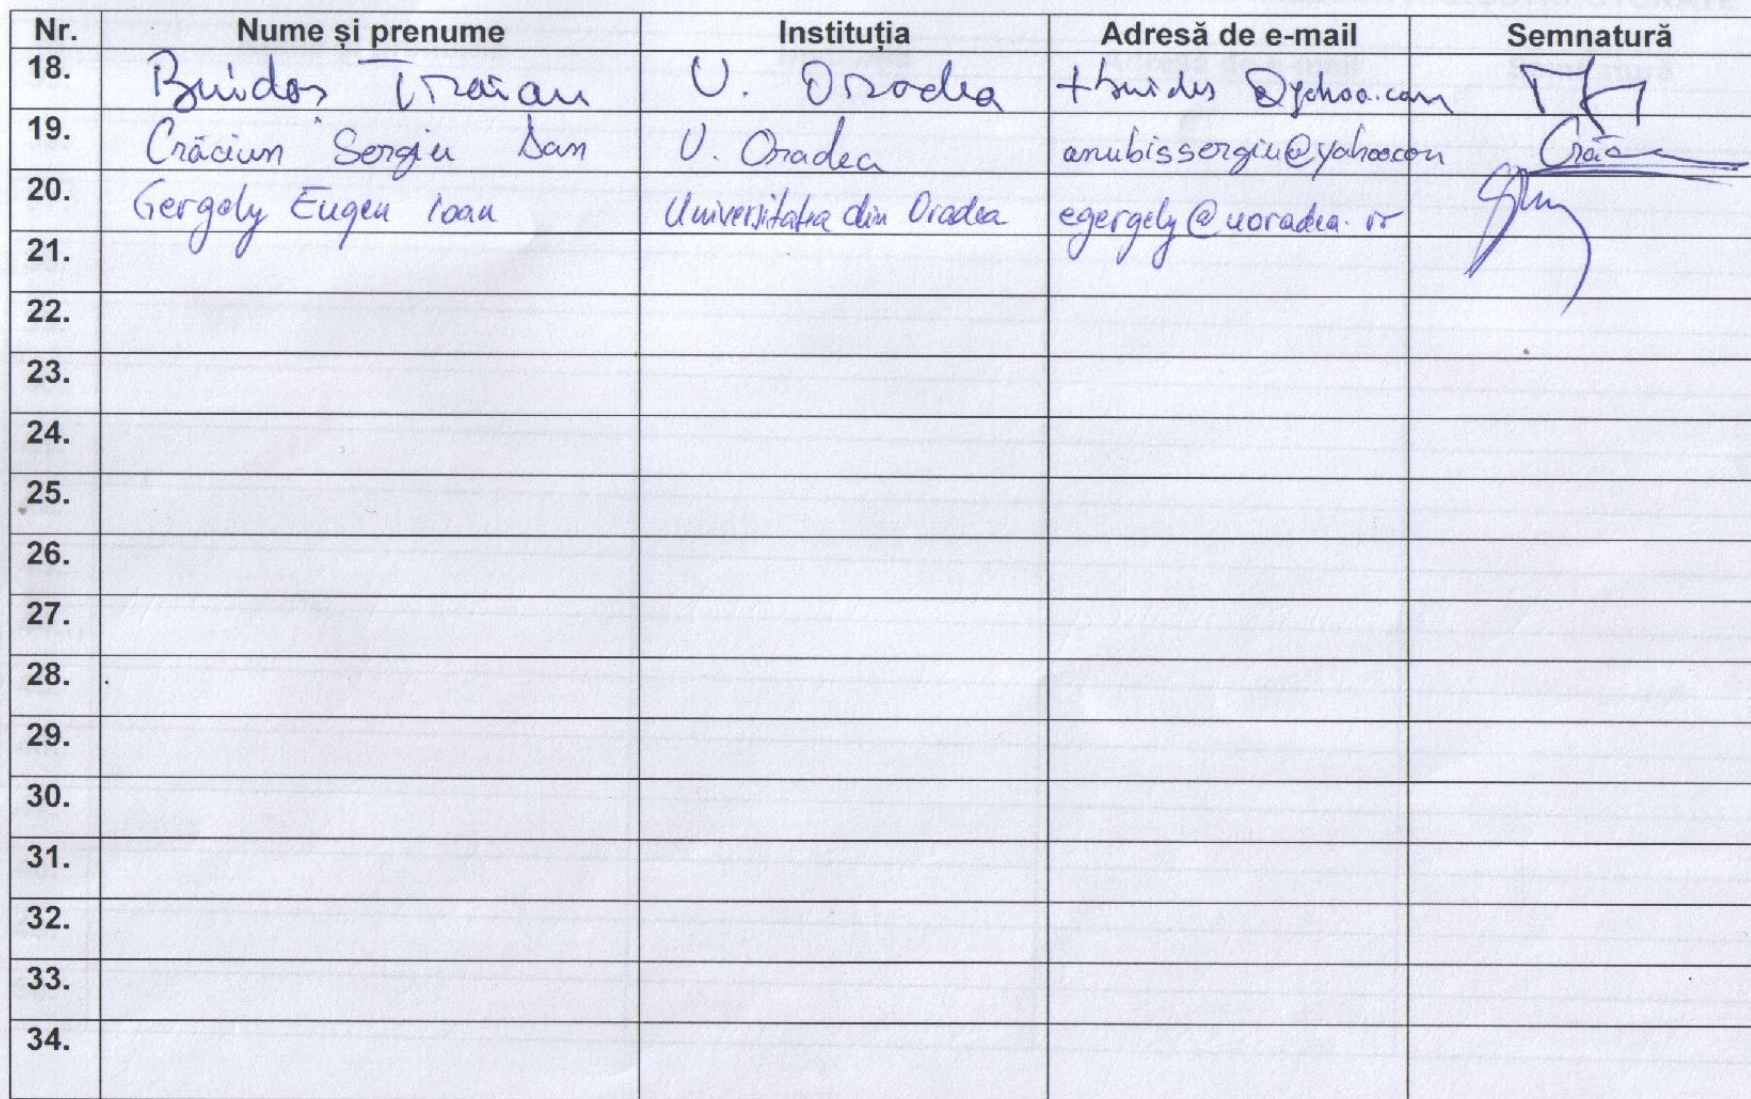 Nr. Nume și prenume Instituția Adresă de e-mail Semnatură
18. Buidoș Traian U. Oradea tbuidos@yahoo.com
19. Crăciun Sergiu Dan U. Oradea anubissergiu@yahoo.com Crăc
20. Gergely Eugen Ioan Universitatea din Oradea egergely@uoradea.ro
21.
22.
23.
24.
25.
26.
27.
28.
29.
30.
31.
32.
33.
34.